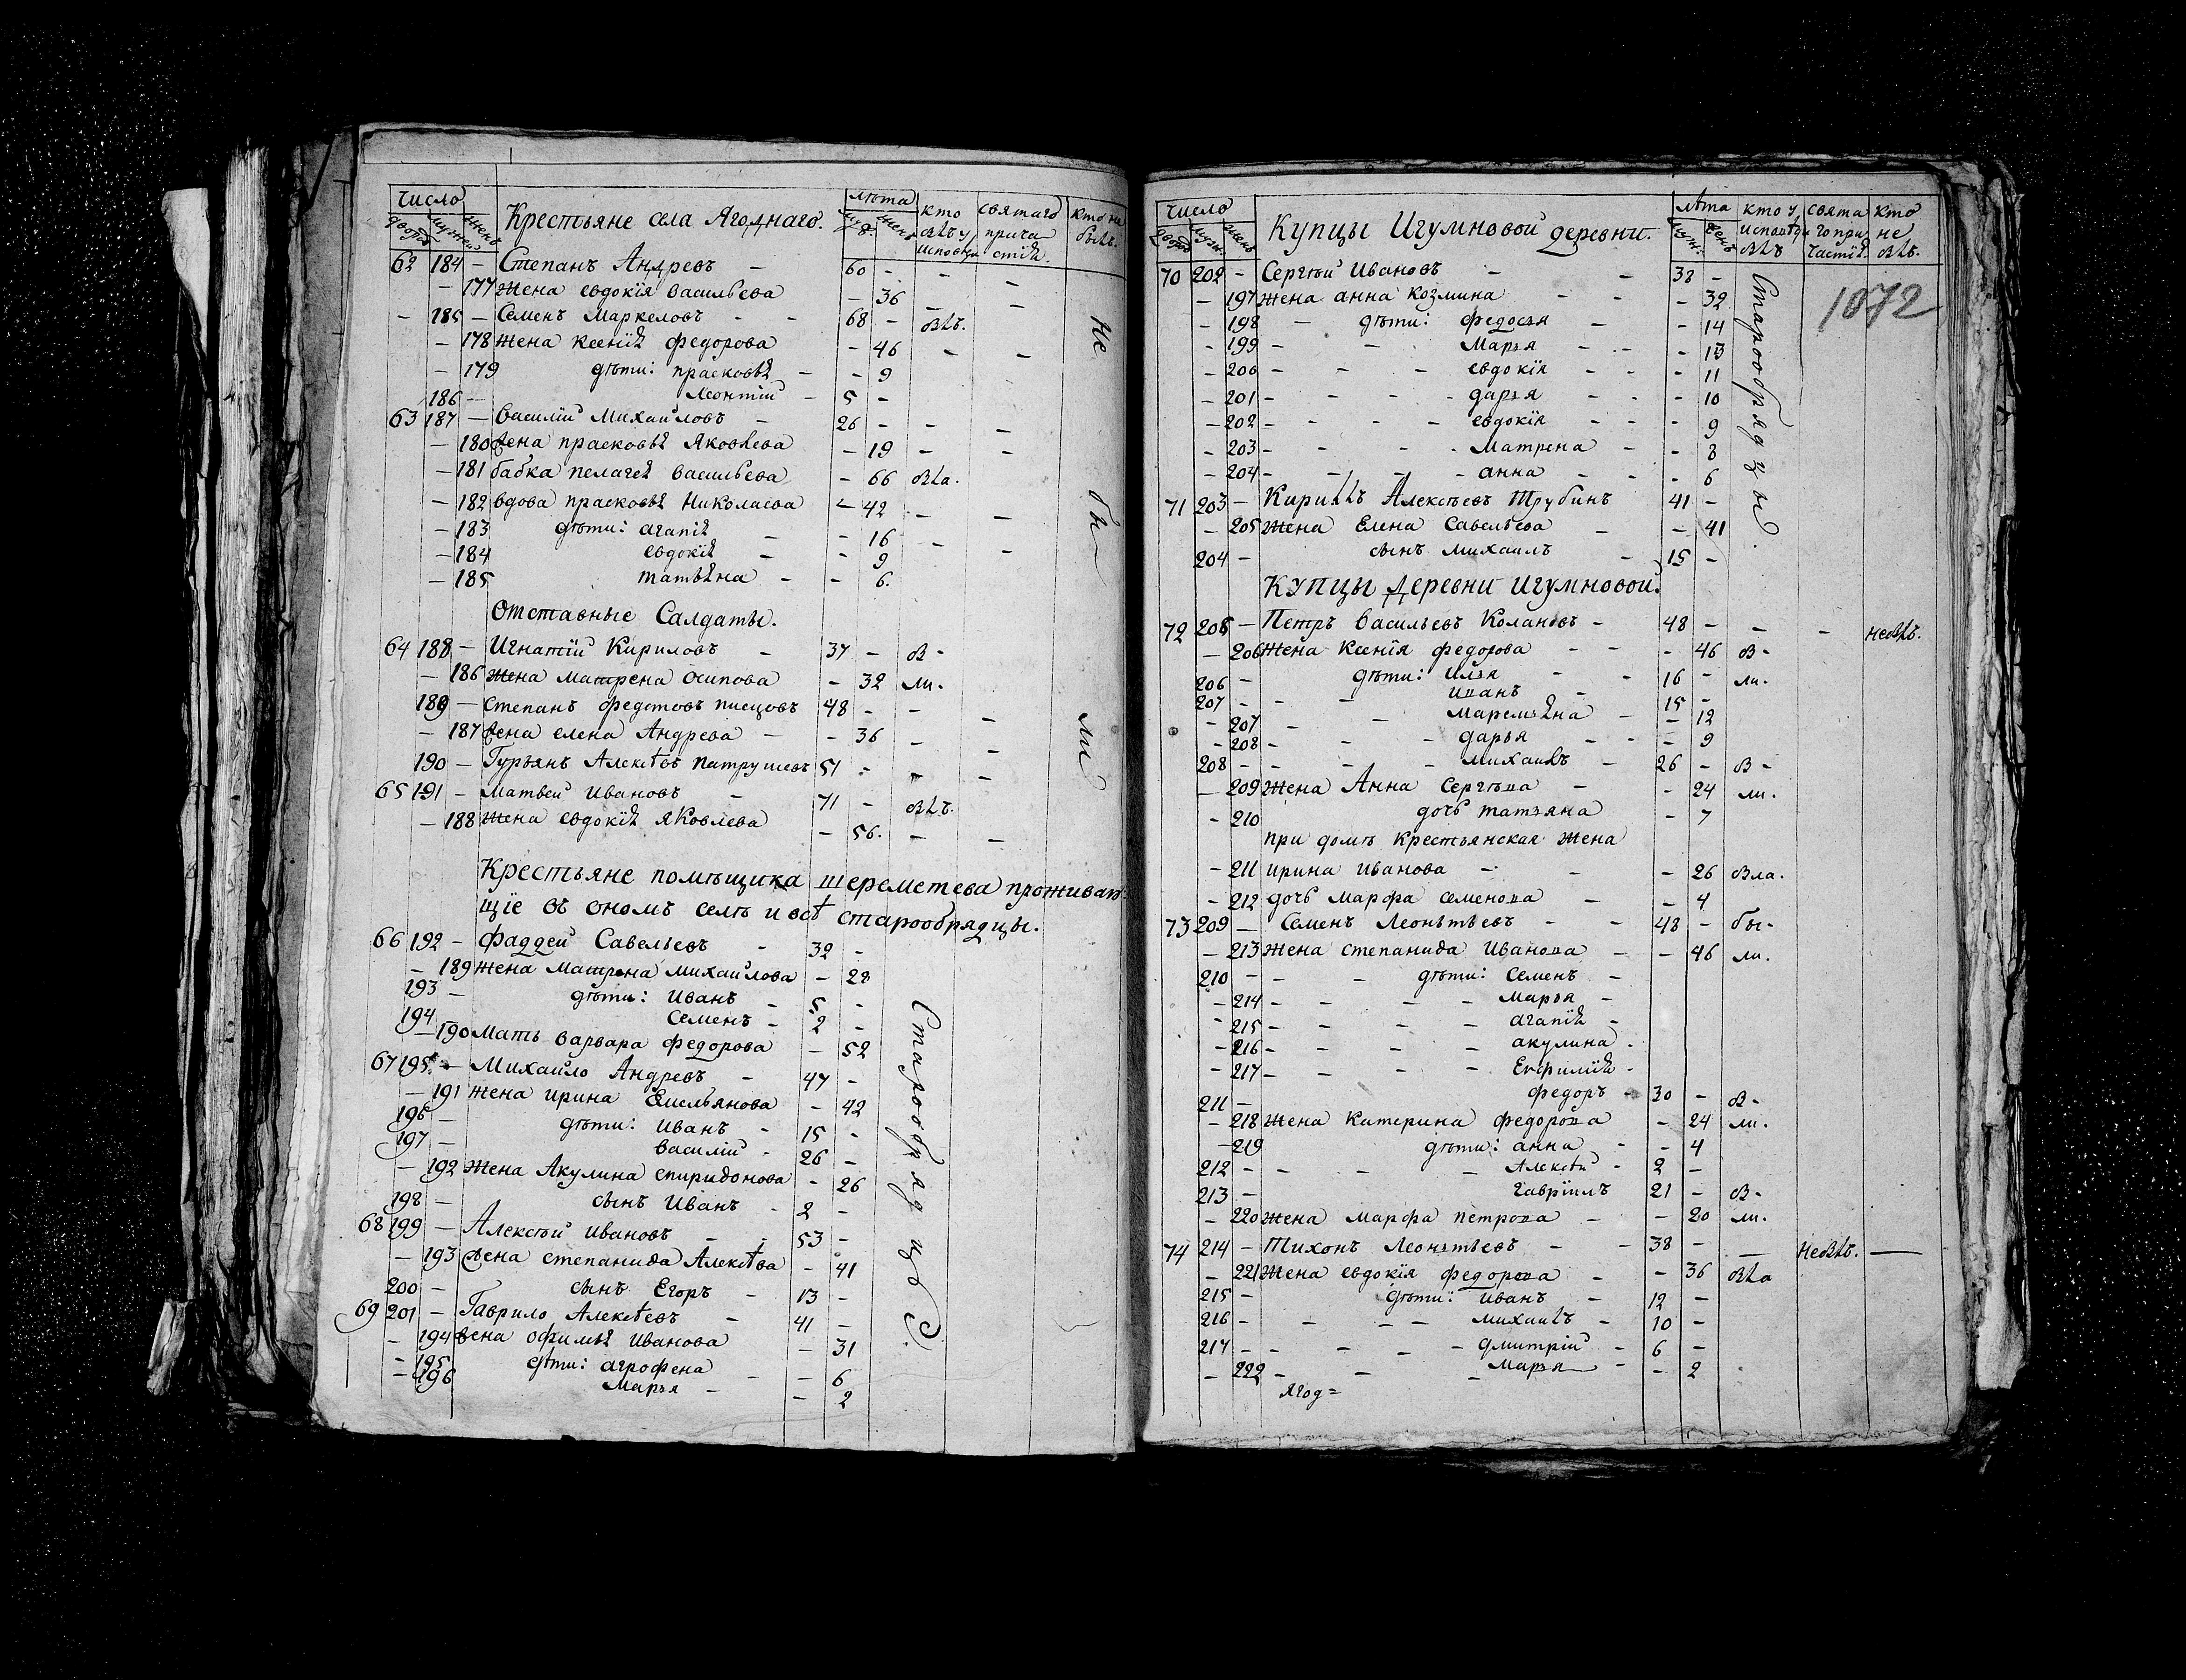 число
дворовъ мужеск женск
Крестьяне села Ягоднаго.
лѣта
муж. женс
кто былъ у исповѣди
святаго причастія.
кто не былъ.
62 184 - Степанъ Андревъ - 60 - -
- 177 жена евдокія васильева - 36 - -
- 185 - Семенъ Маркеловъ - - 68 - былъ.
- 178 жена ксенія федорова - 46 - -
- 179 дѣти: прасковья - - 9
186 - леонтій - 5 -
63 187 - Василій Михайловъ - 26 - - -
- 180 жена прасковья Яковлева - 19 - -
- 181 бабка пелагея васильева - 66 была.
- 182 вдова прасковья Николаева - 42 - -
- 183 дѣти: агапія - - 16 - -
- 184 евдокія - - 9
- 185 татьяна - - 6.
не бы ли
Отставные Салдаты.
64 188 - Игнатій Кириловъ - 37 - бы-
- 186 жена матрена осипова - 32 ли.
189 - степанъ федотовъ писцовъ 48 - - -
- 187 жена елена Андрева - - 36 - -
190 - Гурьянъ Алексѣевъ патрушевъ 51 - - -
65 191 - матвей ивановъ - 71 - былъ.
- 188 жена евдокія яковлева - 56. - -
Крестьяне помѣщика шереметева проживаю-
щіе въ ономъ селѣ и всѣ старообрядцы.
66 192 - фаддей Савельевъ - 32 -
- 189 жена матрена михайлова - 28
193 - дѣти: иванъ - 5 -
194 семенъ - 2 -
- 190 мать варвара федорова - 52
67 195 - Михайло Андревъ - 47 -
- 191 жена ирина Емельянова - 42
196 - дѣти: иванъ - 15 -
197 - василій - 26 -
- 192 жена Акулина спиридонова - 26
198 - сынъ иванъ - 2 -
68 199 - Алексѣй ивановъ - - 53 -
- 193 жена степанида Алексѣева - 41
200 - сынъ Егоръ - 13 -
69 201 - Гаврило Алексѣевъ - 41 -
- 194 жена офимья иванова - 31
- 195 дѣти: агрофена - - 6
- 196 марья - - 2
Старообрядцы.
число
дворов муж. женс
Купцы Игумновой деревни.
лѣта
муж. женс
кто у исповѣди былъ
святаго причастія.
кто не былъ.
1072
70 202 - Сергѣй ивановъ - - 38 -
- 197 жена анна козмина - - - 32
- 198 - дѣти: федосья - - 14
- 199 - - марья - - - 13
- 200 - - - евдокія - - - 11
- 201 - - - - дарья - - - 10
- 202 - - - - евдокія - - - 9
- 203 - - - - матрена - - 8
- 204 - - - - анна - - - 6
71 203 - Кирилъ Алексѣевъ Трубинъ 41 -
- 205 жена Елена савельева - - 41
204 - сынъ михаилъ - 15 -
Старообрядцы.
Купцы деревни игумновой.
72 205 - Петръ васильевъ Колановъ - 48 - - - небылъ.
- 206 жена ксенія федорова - - - 46 бы-
206 - дѣти: илья - - 16 - ли.
207 - - - иванъ - 15 -
- 207 - маремьяна - - 12
- 208 - - - дарья - - - 9
208 - - - - михаилъ - 26 - бы-
- 209 жена Анна сергѣева - - 24 ли.
- 210 дочь татьяна - 7
при домѣ крестьянская жена
- 211 ирина иванова - - 26 была.
- 212 дочь марфа семенова - - 4
73 209 - Семенъ Леонтьевъ - - 48 - бы-
- 213 жена степанида иванова - - 46 ли.
210 - - - дѣти: семенъ -
- 214 - - - - марья -
- 215 - - - - агапія -
- 216 - - - - акулина -
- 217 - - - - Евфимія -
211 - федоръ - 30 - бы-
- 218 жена катерина федорова - 24 ли.
- 219 дѣти: анна - - 4
212 - - - - Алексѣй - 2 -
213 - гавріилъ 21 - бы-
- 220 жена марфа петрова - - 20 ли.
74 214 - Тихонъ леонтьевъ - - 38 - - небылъ. -
- 221 жена евдокія федорова - - 36 была
215 - дѣти: иванъ - 12 -
216 - - - - михаилъ - 10 -
217 - - - - дмитрій - 6 -
- 222 - - - марья - - 2
Ягод=